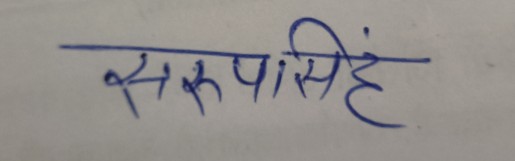 सरूपासिंहं